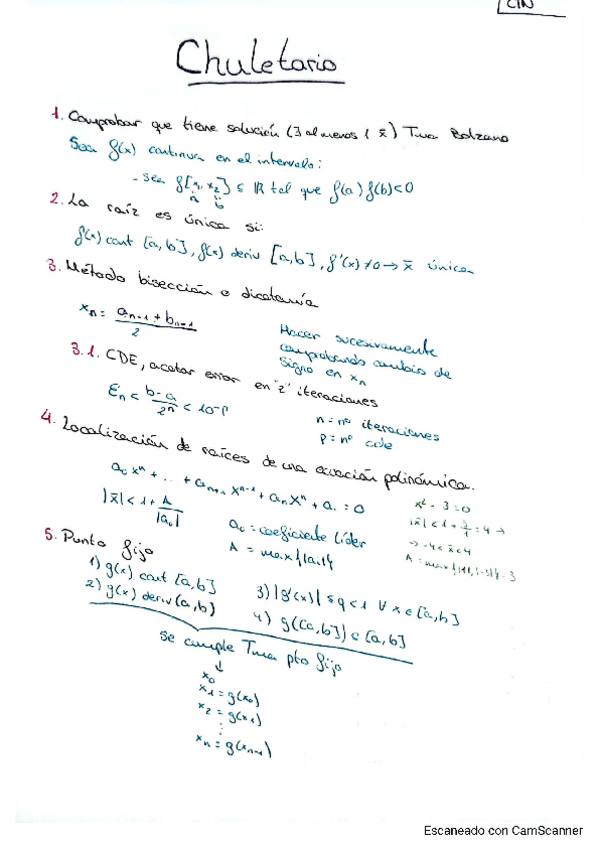 CIN
Chuletario
1. Comprobar que tiene solución (∃ al menos 1 x̄) Tma Bolzano
Sea f(x) continua en el intervalo:
- sea f[x₁, x₂] ⊂ ℝ tal que f(a) f(b) < 0
a b
2. La raíz es única si:
f(x) cont [a,b], f(x) deriv [a,b], f'(x) ≠ 0 → x̄ única
3. Método bisección o dicotomía
xₙ = (aₙ₋₁ + bₙ₋₁) / 2
Hacer sucesivamente
comprobando cambio de
signo en xₙ
3.1. CDE, acotar error en "z" iteraciones
Eₙ < (b-a) / 2ⁿ < 10⁻ᵖ
n = nº iteraciones
p = nº cde
4. Localización de raíces de una ecuación polinómica.
a₀xⁿ + .. + xⁿ⁻¹ + aₙxⁿ + a. = 0
|x̄| < 1 + A / |a₀|
a₀ = coeficiente líder
A = max{|a.|}
x² - 3 = 0
|x̄| < 1 + 3/1 = 4 →
→ -4 < x̄ < 4
A = max{|1|, |-3|} = 3
5. Punto fijo
1) g(x) cont [a,b]
2) g(x) deriv (a,b)
3) |g'(x)| ≤ q < 1 ∀ x ∈ [a,b]
4) g([a,b]) ⊂ [a,b]
Se cumple Tma pto fijo
↓
x₀
x₁ = g(x₀)
x₂ = g(x₁)
⋮
xₙ = g(xₙ₋₁)
Escaneado con CamScanner